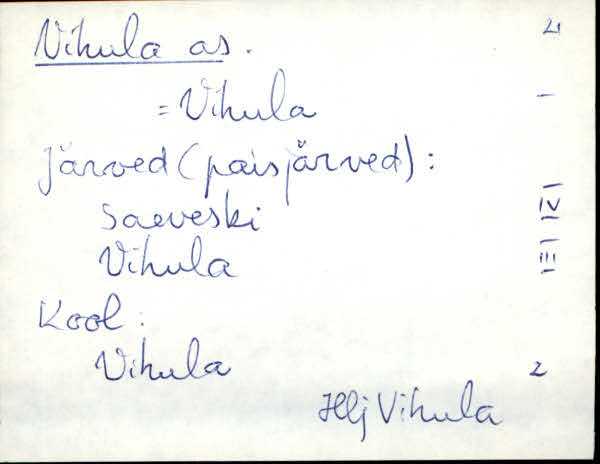 Vihula as. 21
= Vihula I
Järved (paisjärved):
Saeveski IV
Vihula III
Kool:
Vihula 2
Hlj Vihula